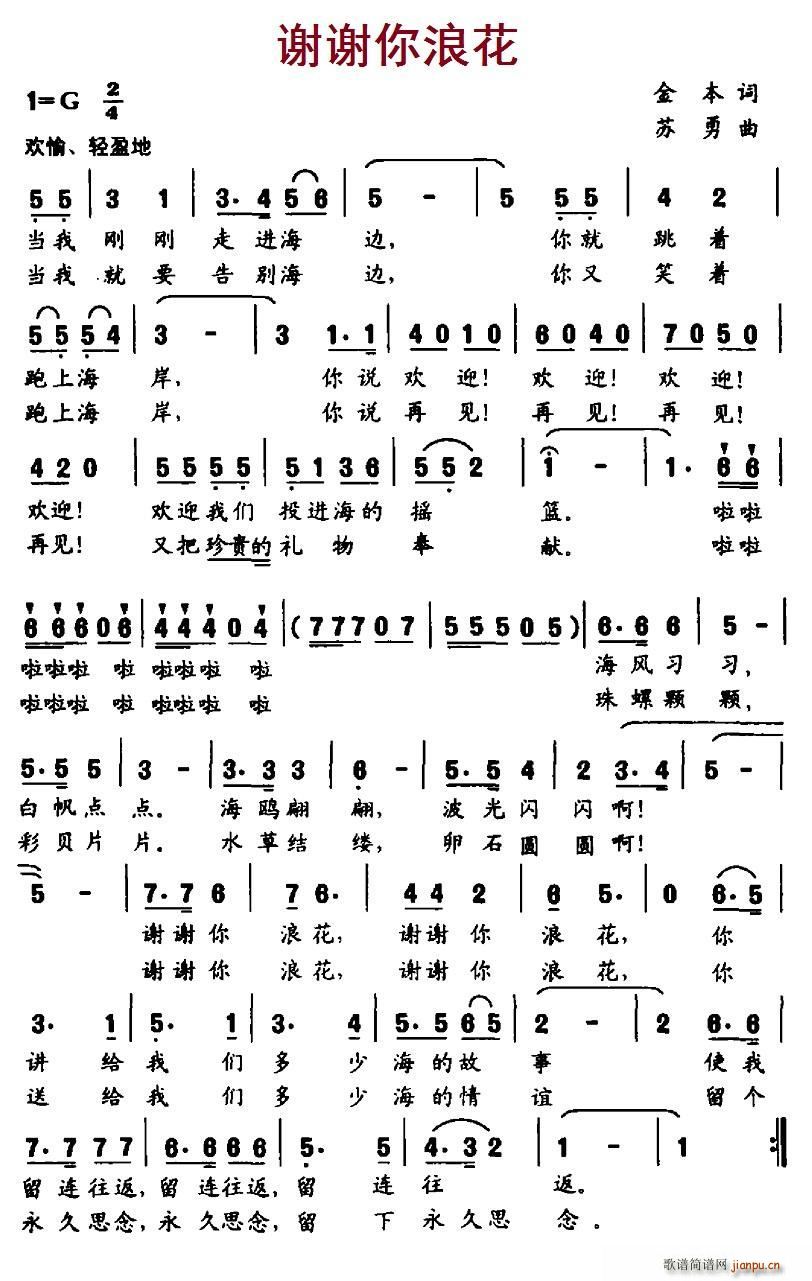 谢谢你浪花
1=G 2/4
金 本 词
苏 勇 曲
欢愉、轻盈地
5 5 | 3 1 | 3· 4 5 6 | 5 - | 5 5 5 | 4 2 |
当我 刚 刚 走 进海 边, 你就 跳 着
当我 就 要 告 别海 边, 你又 笑 着
5 5 5 4 | 3 - | 3 1· 1 | 4 0 1 0 | 6 0 4 0 | 7 0 5 0 |
跑上海 岸, 你说 欢 迎! 欢 迎! 欢 迎!
跑上海 岸, 你说 再 见! 再 见! 再 见!
4 2 0 | 5 5 5 5 | 5 1 3 6 | 5 5 2 | 1 - | 1· 6 6 |
欢迎! 欢迎我们 投进海的 摇 篮。 啦啦
再见! 又把珍贵的 礼 物 奉 献。 啦啦
6 6 6 0 6 | 4 4 4 0 4 | ( 7 7 7 0 7 | 5 5 5 0 5 ) | 6· 6 6 | 5 - |
啦啦啦 啦 啦啦啦 啦 海 风 习 习,
啦啦啦 啦 啦啦啦 啦 珠 螺 颗 颗,
5· 5 5 | 3 - | 3· 3 3 | 6 - | 5· 5 4 | 2 3· 4 | 5 - |
白 帆 点 点。 海 鸥 翩 翩, 波 光 闪 闪 啊!
彩 贝 片 片。 水 草 结 缕, 卵 石 圆 圆 啊!
5 - | 7· 7 6 | 7 6· | 4 4 2 | 6 5· | 0 6· 5 |
谢 谢 你 浪 花, 谢谢 你 浪 花, 你
谢 谢 你 浪 花, 谢谢 你 浪 花, 你
3· 1 | 5· 1 | 3· 4 | 5· 5 6 5 | 2 - | 2 6· 6 |
讲 给 我 们 多 少 海 的 故 事 使 我
送 给 我 们 多 少 海 的 情 谊 留 个
7· 7 7 7 | 6· 6 6 6 | 5· 5 | 4· 3 2 | 1 - | 1 :||
留 连往返, 留 连往返, 留 连 往 返。
永 久思念, 永 久思念, 留 下 永 久思 念。
歌谱简谱网
jianpu.cn